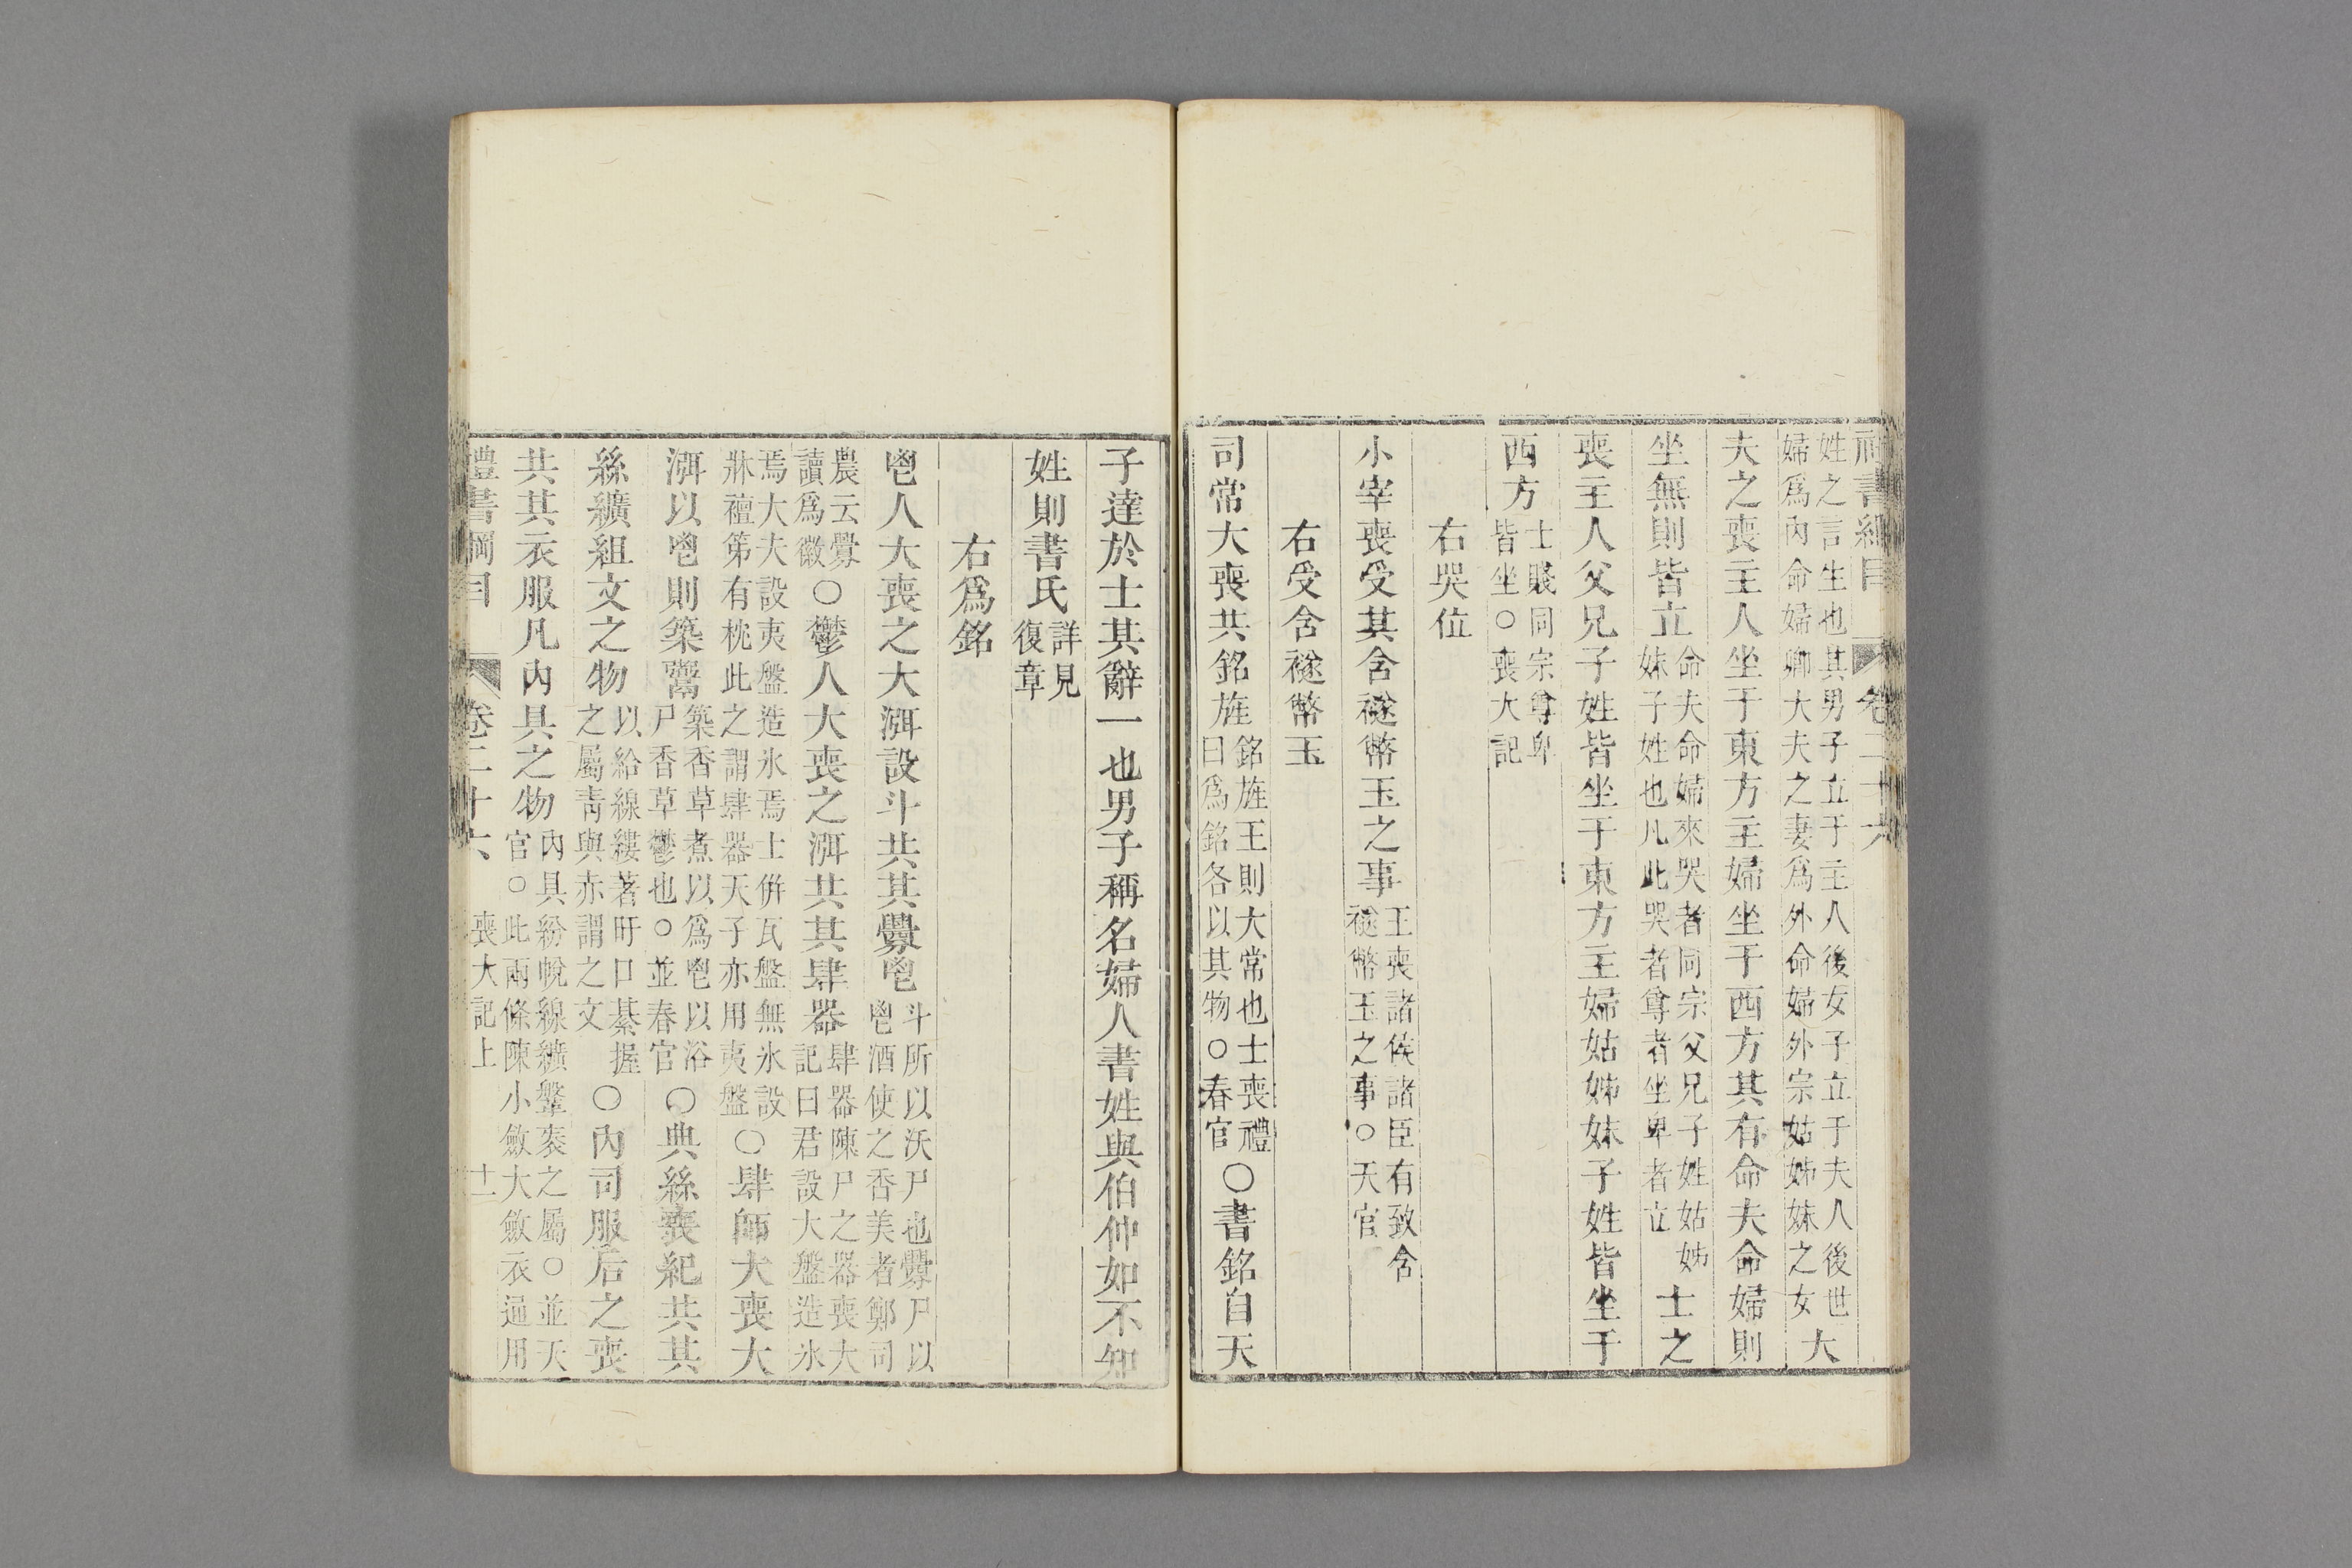 禮書綱目 卷二十六
姓之言生也其男子立于主人後女子立于夫人後世
婦爲內命婦卿大夫之妻爲外命婦外宗姑姊妹之女
大
夫之喪主人坐于東方主婦坐于西方其有命夫命婦則
坐無則皆立
命夫命婦來哭者同宗父兄子姓姑姊
妹子姓也凡此哭者尊者坐卑者立
士之
喪主人父兄子姓皆坐于東方主婦姑姊妹子姓皆坐于
西方
士賤同宗尊卑
皆坐○喪大記
右哭位
小宰喪受其含襚幣玉之事
王喪諸侯諸臣有致含
襚幣玉之事○天官
右受含襚幣玉
司常大喪共銘旌
銘旌王則大常也士喪禮
曰爲銘各以其物○春官
○書銘自天
子達於士其辭一也男子稱名婦人書姓與伯仲如不知
姓則書氏
詳見
復章
右爲銘
鬯人大喪之大渳設斗共其釁鬯
斗所以沃尸也釁尸以
鬯酒使之香美者鄭司
農云釁
讀爲徽
○鬱人大喪之渳共其肆器
肆器陳尸之器喪大
記曰君設大盤造冰
焉大夫設夷盤造冰焉士倂瓦盤無冰設
牀襢笫有枕此之謂肆器天子亦用夷盤
○肆師大喪大
渳以鬯則築鬻
築香草煮以爲鬯以浴
尸香草鬱也○並春官
○典絲喪紀共其
絲纊組文之物
以給線縷著盱口綦握
之屬靑與赤謂之文
○內司服后之喪
共其衣服凡內具之物
內具紛帨線纊鞶袠之屬○並天
官○此兩條陳小斂大斂衣通用
喪大記上
禮書綱目 卷二十六 十一